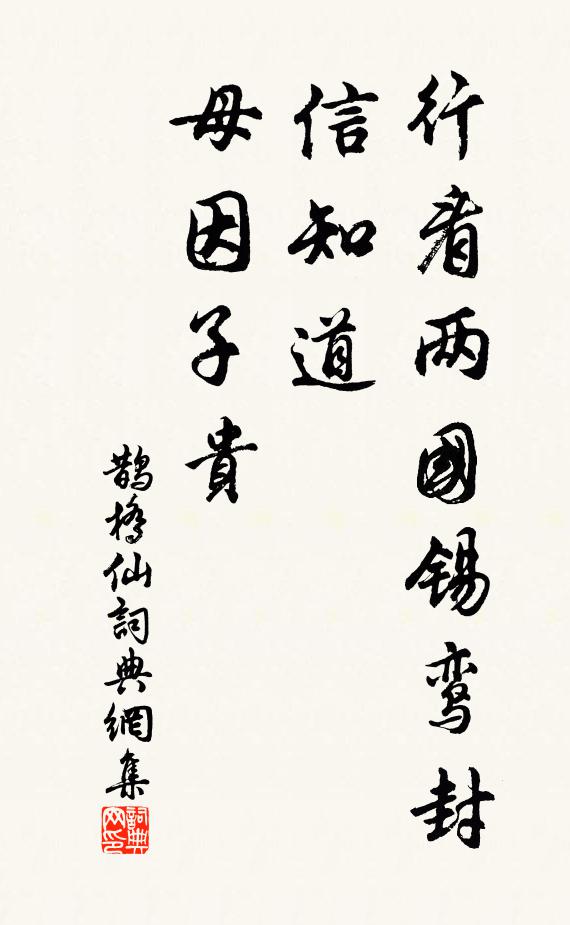 行看两國錫鸾封
信知道
母因子貴
鵲橋仙詞典網集
詞典网印